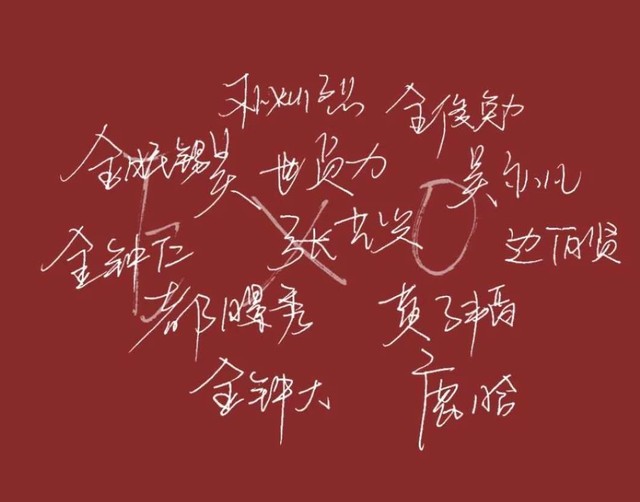 朴灿烈 金俊勉
金珉锡 吴世勋 吴亦凡
EXO
金钟仁 张艺兴 边伯贤
都暻秀 黄子韬
金钟大 鹿晗